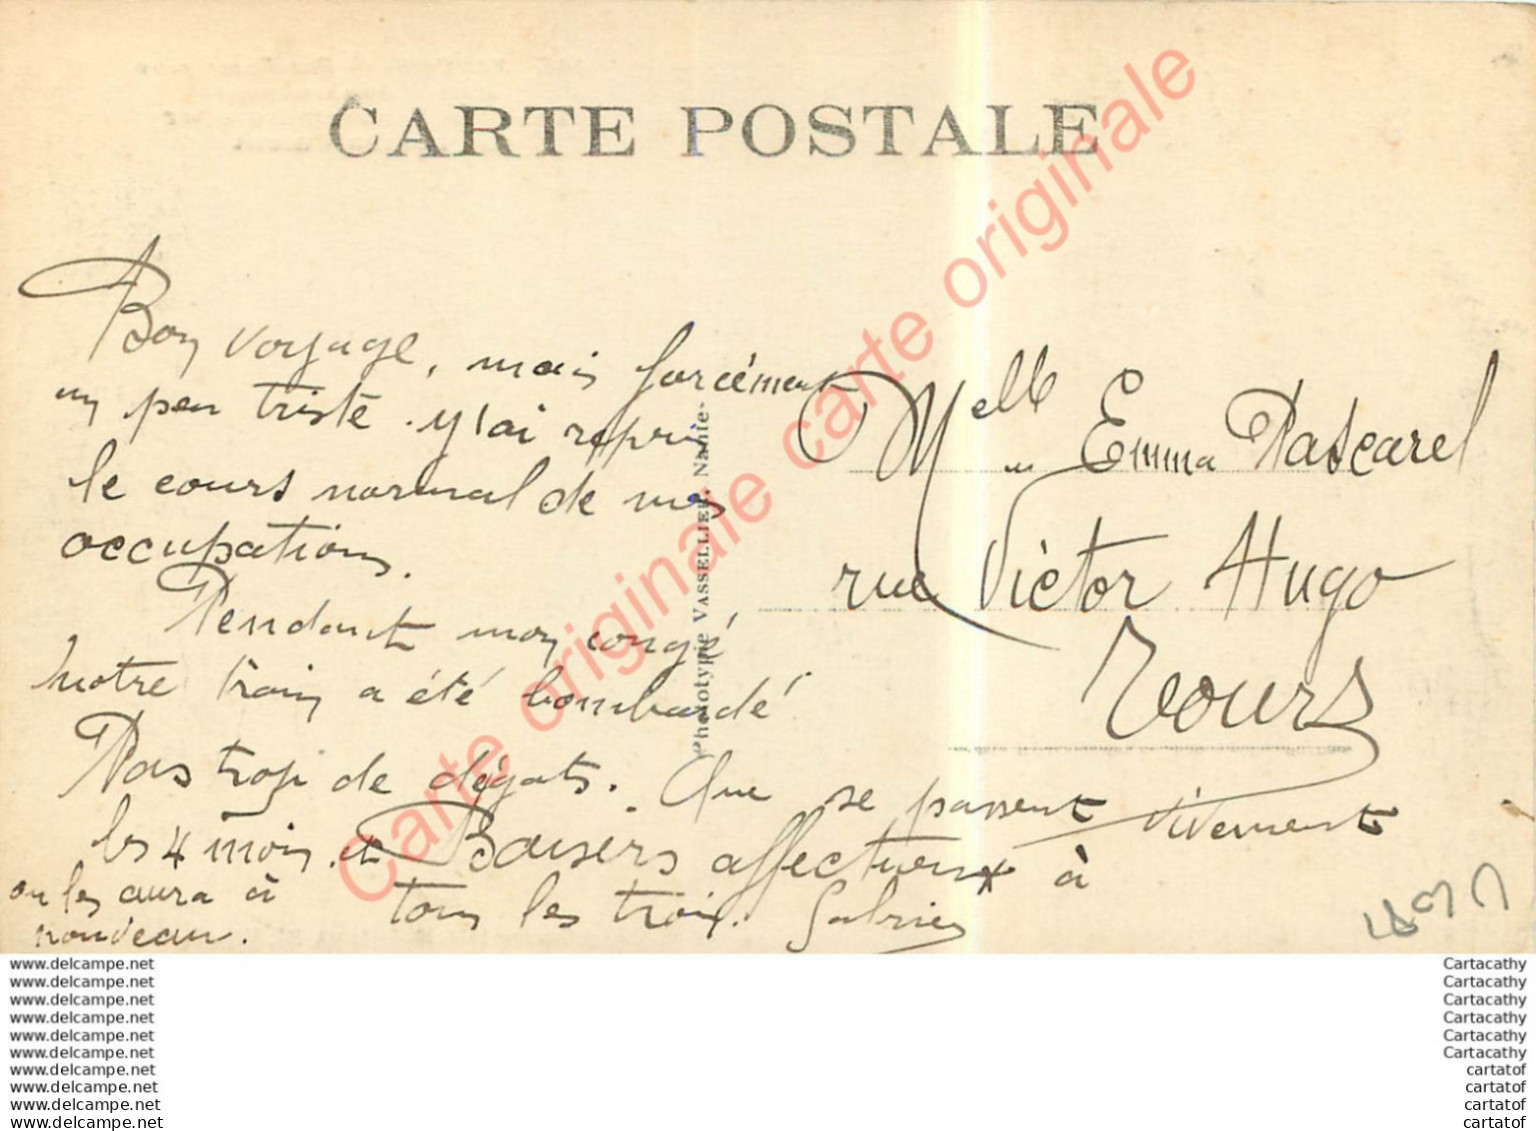 CARTE POSTALE
Bon voyage, mais forcément
un peu triste. J'ai repris
le cours normal de nos
occupations.
Pendant mon congé
notre train a été bombardé
Pas trop de dégats. Que se passent vivement
les 4 mois et Baisers affectueux à
on les aura à tous les trois. Gabriel
nouveau.
Melle Emma Pascarel
rue Victor Hugo
Tours
Phototypie VASSELLIER, Nantes
Carte originale carte originale
www.delcampe.net
www.delcampe.net
www.delcampe.net
www.delcampe.net
www.delcampe.net
www.delcampe.net
www.delcampe.net
www.delcampe.net
www.delcampe.net
www.delcampe.net
Cartacathy
Cartacathy
Cartacathy
Cartacathy
Cartacathy
Cartacathy
cartatof
cartatof
cartatof
cartatof